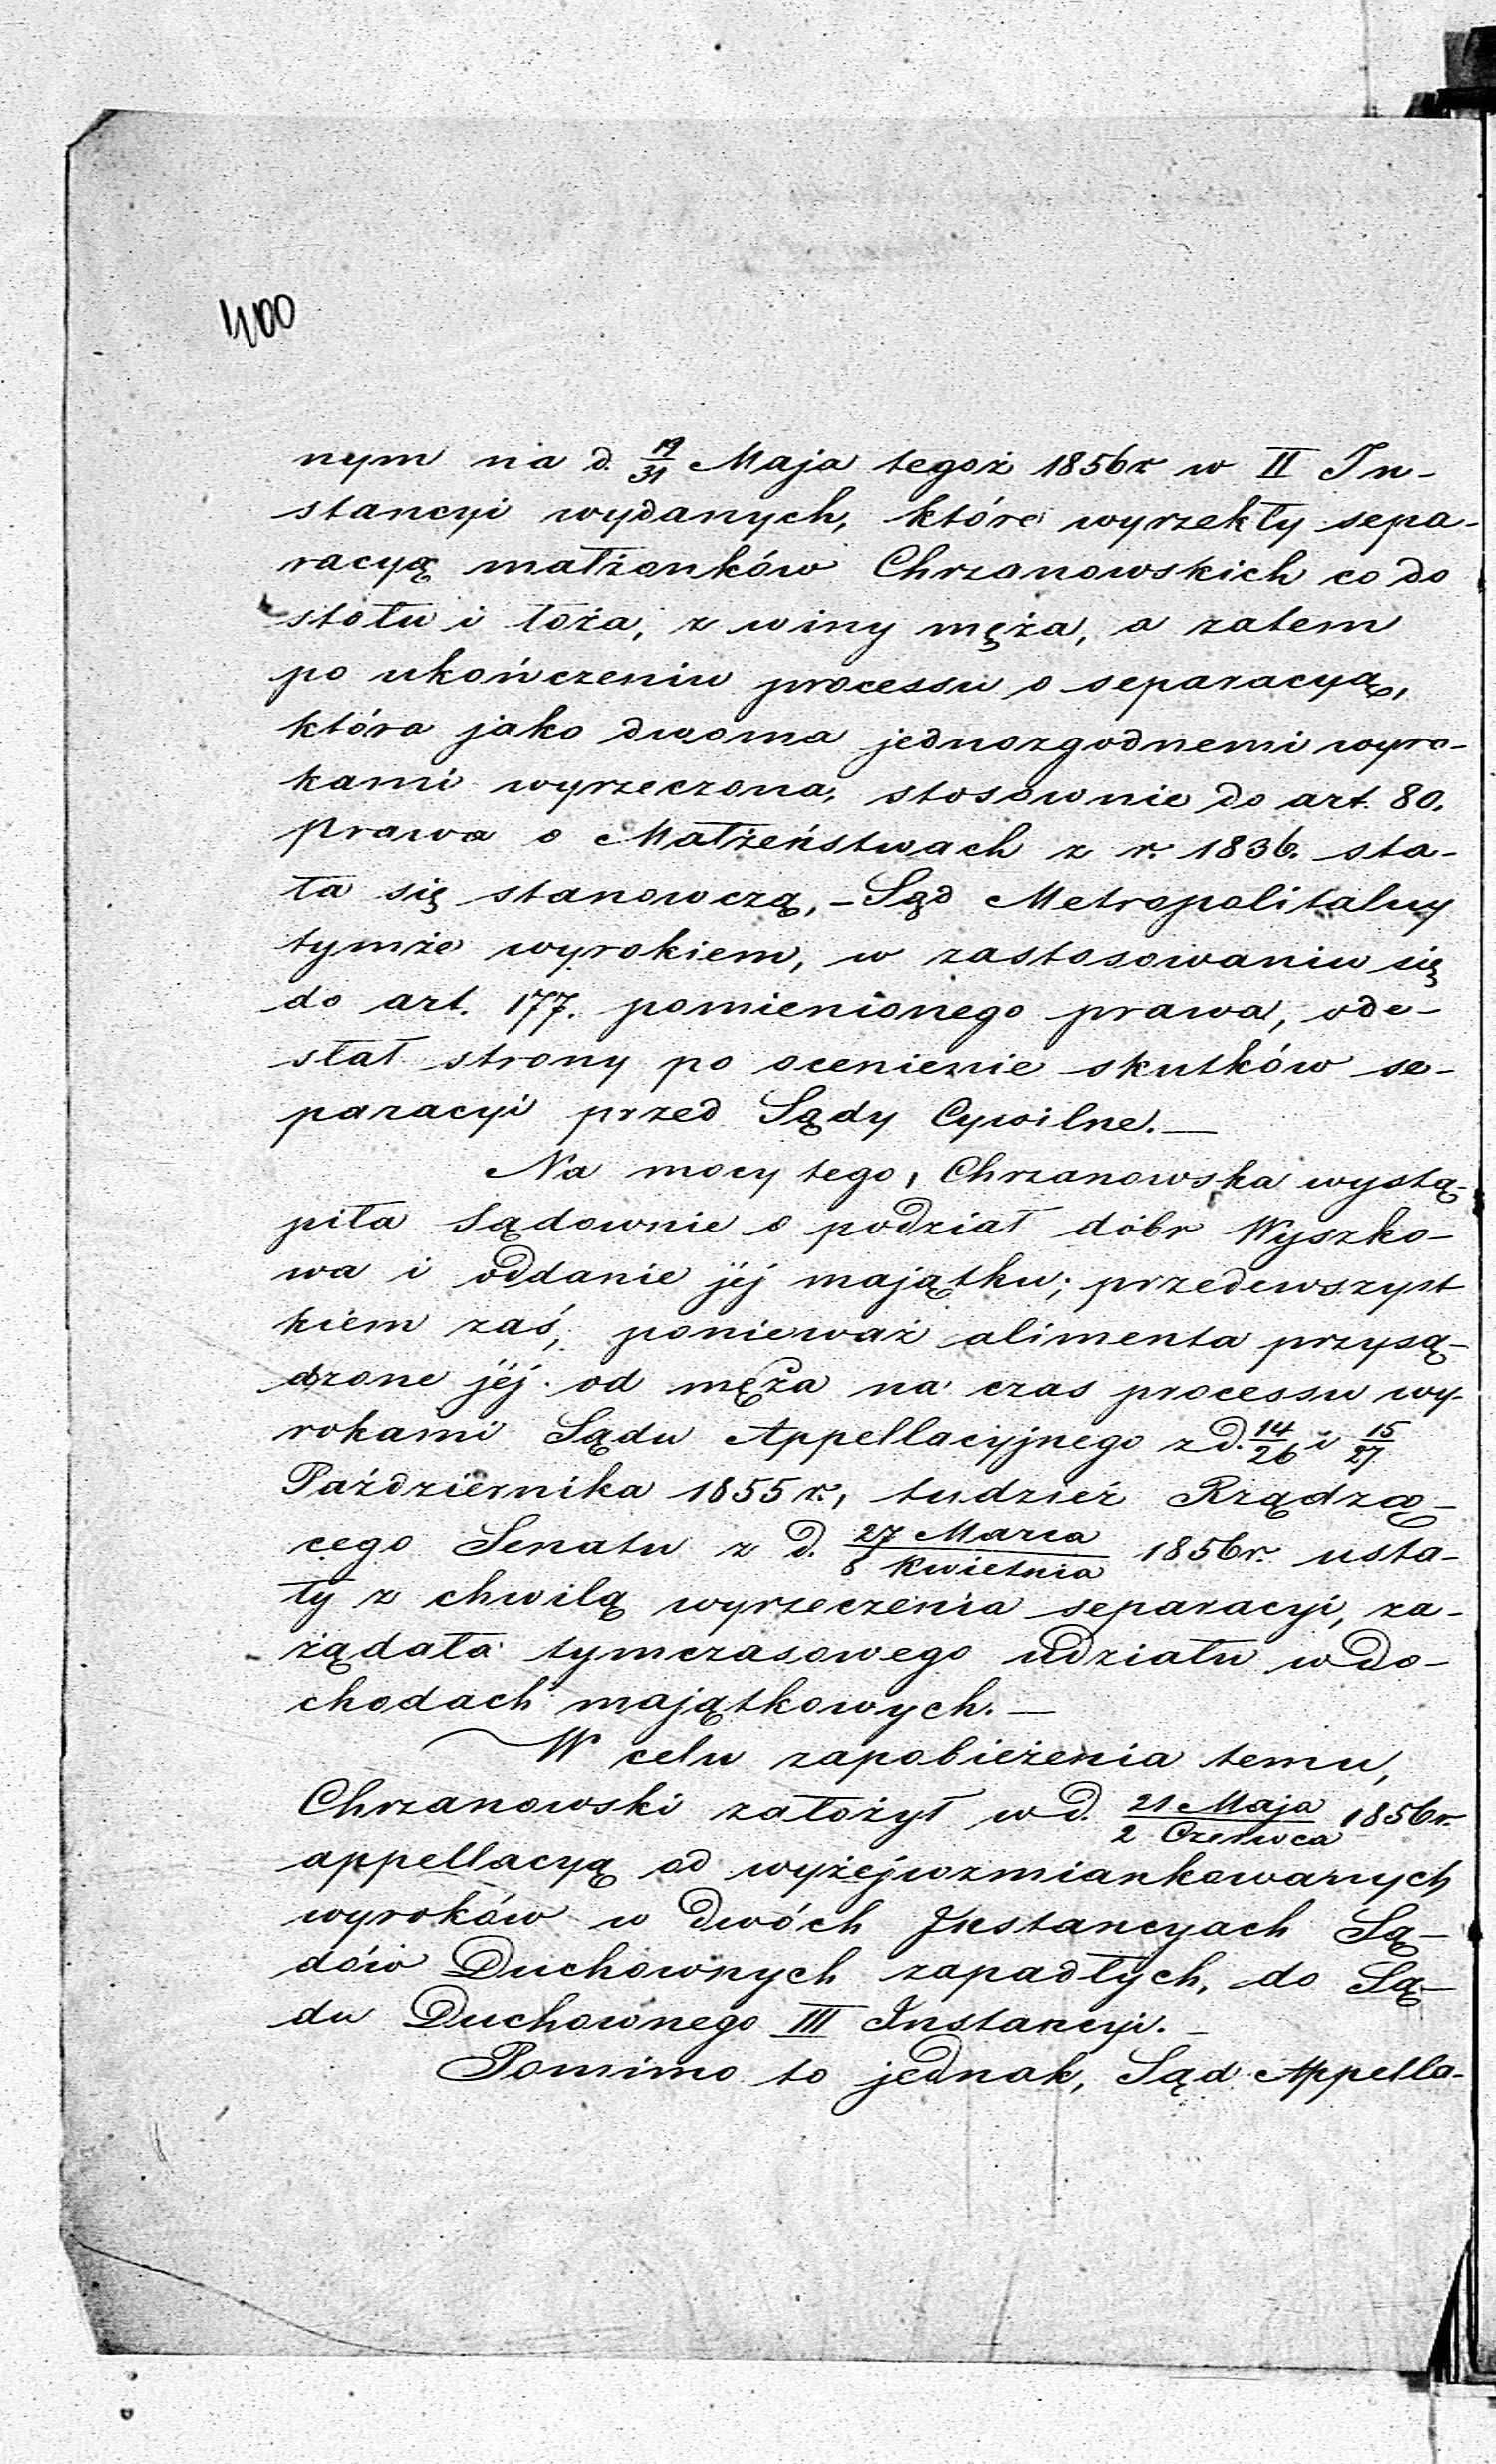 400
nym na d. 19/31 Maja tegoż 1856 r. w II In-
stancyi wydanych, które wyrzekły sepa-
racyą małżonków Chrzanowskich co do
stołu i łoża, z winy męża, a zatem
po ukończeniu processu o separacyą,
która jako dwoma jednozgodnemi wyro-
kami wyrzeczona, stosownie do art. 80.
Prawa o Małżeństwach z r. 1836. sta-
ła się stanowczą, – Sąd Metropolitalny
tymże wyrokiem, w zastosowaniu się
do art. 177. pomienionego prawa, ode-
słał strony po ocenienie skutków se-
paracyi przed Sądy Cywilne. —
Na mocy tego, Chrzanowska wystą-
piła Sądownie o podział dóbr Wyszko-
wa i oddanie jéj majątku; przedewszyst
kiem zaś, ponieważ alimenta przysą-
dzone jéj od męża na czas processu wy-
rokami Sądu Appellacyjnego z d. 14/26 i 15/27
Października 1855 r., tudzież Rządzą-
cego Senatu z d. 27 Marca/8 Kwietnia 1856 r. usta-
ły z chwilą wyrzeczenia separacyi, za-
żądała tymczasowego udziału w do-
chodach majątkowych. —
W celu zapobieżenia temu,
Chrzanowski założył w d. 21 Maja/2 Czerwca 1856 r.
appellacyą od wyżejwzmiankowanych
wyroków w dwóch Instancyach Są-
dów Duchownych zapadłych, do Są-
du Duchownego III Instancyi. –
Pomimo to jednak, Sąd Appella-